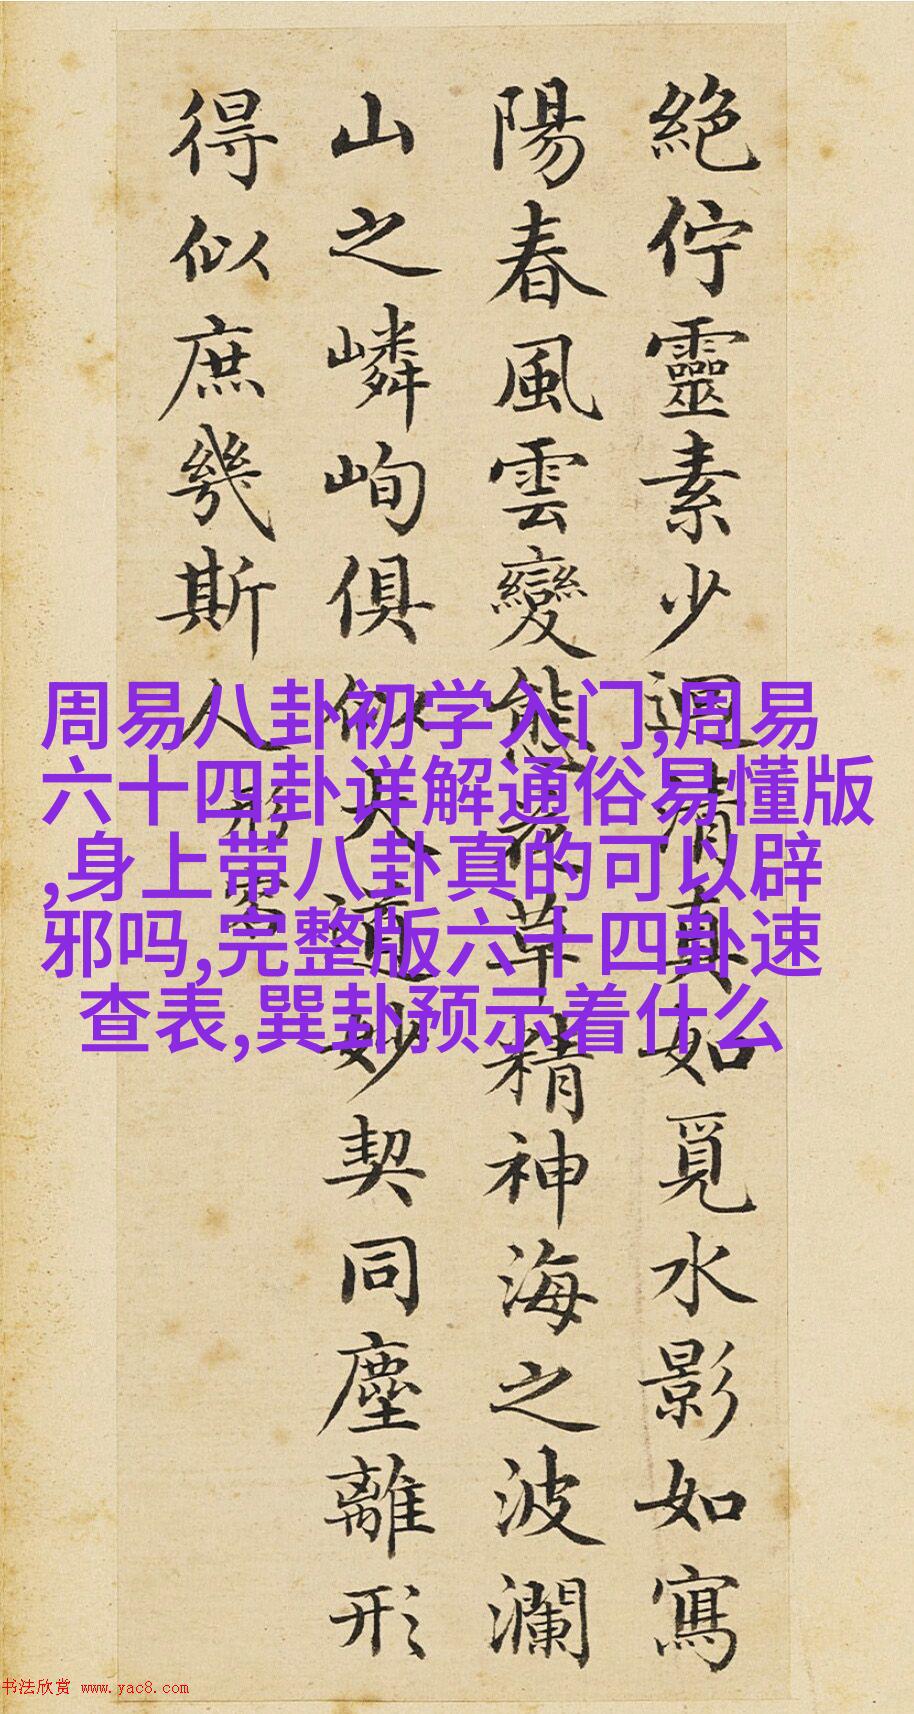 絶佇靈素少迴清真如覓水影如寫
陽春風雲變態花草精神海之波瀾
山之嶙峋俱似大道妙契同塵離形
得似庶幾斯人
形容
周易八卦初学入门,周易
六十四卦详解通俗易懂版
,身上带八卦真的可以辟
邪吗,完整版六十四卦速
查表,巽卦预示着什么
书法欣赏 www.yac8.com